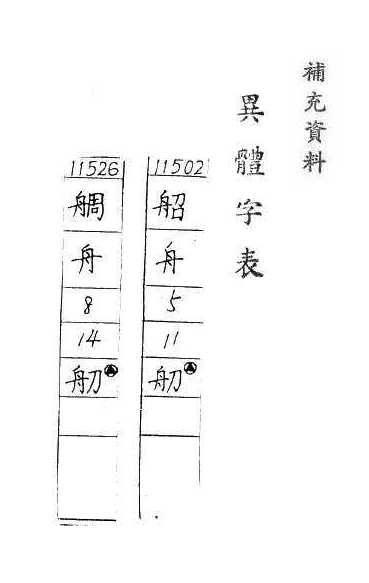 補充資料
異體字表
11502
舟
5
11
舠
11526
舟
8
14
舠